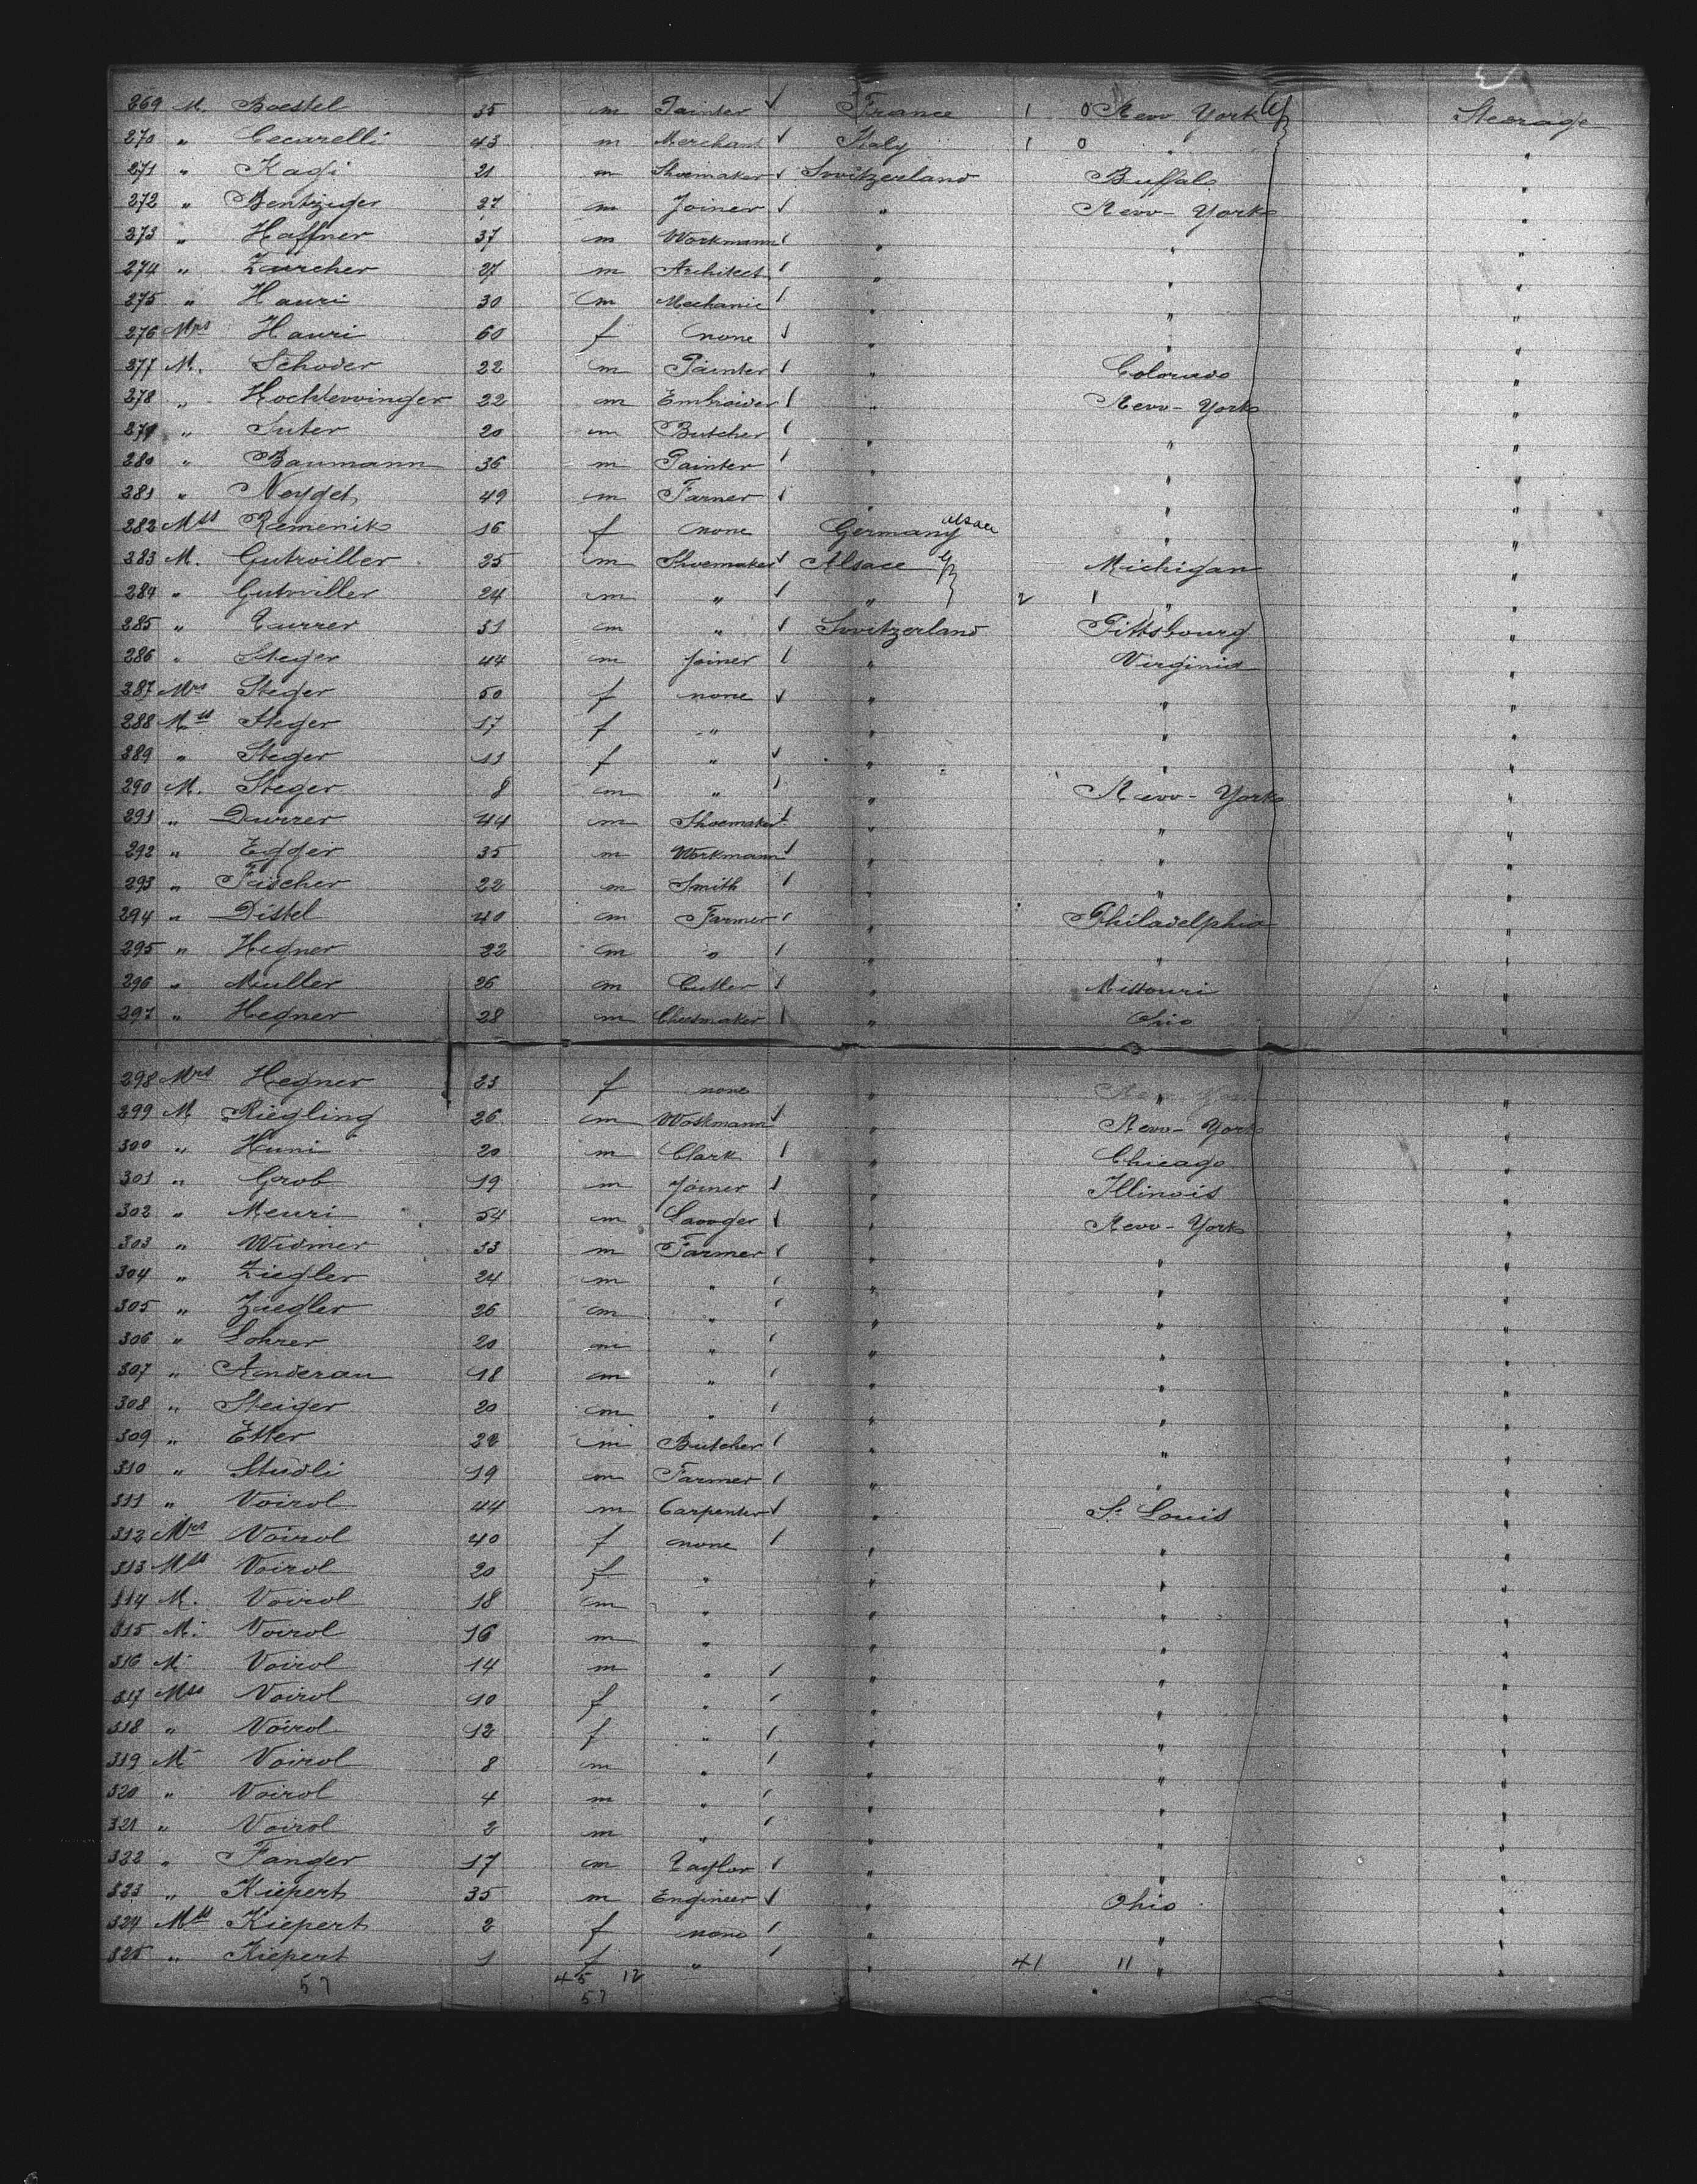 269 M. Boestel 35 m Painter France 1 0 New York Steerage
270 " Cecarelli 43 m Merchant Italy 1 0 " "
271 " Kagi 21 m Shoemaker Switzerland Buffalo "
272 " Bentziger 27 m Joiner " New-York "
273 " Haffner 37 m Workmann " " "
274 " Zurcher 27 m Architect " " "
275 " Hauri 30 m Mechanic " " "
276 Mrs Hauri 60 f none " " "
277 M. Schoder 22 m Painter " Colorado "
278 " 22 m Embroider " New-York "
279 " Suter 20 m Butcher " " "
280 " Baumann 36 m Painter " " "
281 " 49 m Farmer " " "
282 Mss Rémenik 16 f none Germany Alsace " "
283 M. Gutwiller 25 m Shoemaker Alsace Michigan "
284 " Gutwiller 24 m " " 2 1 " "
285 " 31 m " Switzerland Pittsbourg "
286 " Steger 44 m Joiner " Virginia "
287 Mrs Steger 50 f none " " "
288 Mss Steger 17 f " " " "
289 " Steger 11 f " " " "
290 M. Steger 8 m " " New-York "
291 " Durrer 44 m Shoemaker " " "
292 " Egger 35 m Workmann " " "
293 " Fischer 22 m Smith " " "
294 " Distel 40 m Farmer " Philadelphia "
295 " Hegner 22 m " " " "
296 " Muller 26 m Cutler " Missouri "
297 " Hegner 28 m Cheesmaker " Ohio "
298 Mrs Hegner 23 f none " " "
299 M Riegling 26 m Workmann " New-York "
300 " Huni 20 m Clark " Chicago "
301 " Grob 19 m Joiner " Illinois "
302 " Meuri 54 m " New-York "
303 " Widmer 33 m Farmer " " "
304 " Ziegler 24 m " " " "
305 " Ziegler 26 m " " " "
306 " Lohrer 20 m " " " "
307 " Anderau 18 m " " " "
308 " Steiger 20 m " " " "
309 " Etter 22 m Butcher " " "
310 " Studli 19 m Farmer " " "
311 " Voirol 44 m Carpenter " St Louis "
312 Mrs Voirol 40 f none " " "
313 Mss Voirol 20 f " " " "
314 M. Voirol 18 m " " " "
315 M. Voirol 16 m " " " "
316 M. Voirol 14 m " " " "
317 Mss Voirol 10 f " " " "
318 " Voirol 12 f " " " "
319 M Voirol 8 m " " " "
320 " Voirol 4 m " " " "
321 " Voirol 2 m " " " "
322 " Fanger 17 m Taylor " " "
323 " Kiepert 35 m Engineer " Ohio "
324 Mss Kiepert 2 f none " " "
325 " Kiepert 1 f " " 41 11 " "
57 45 12
57